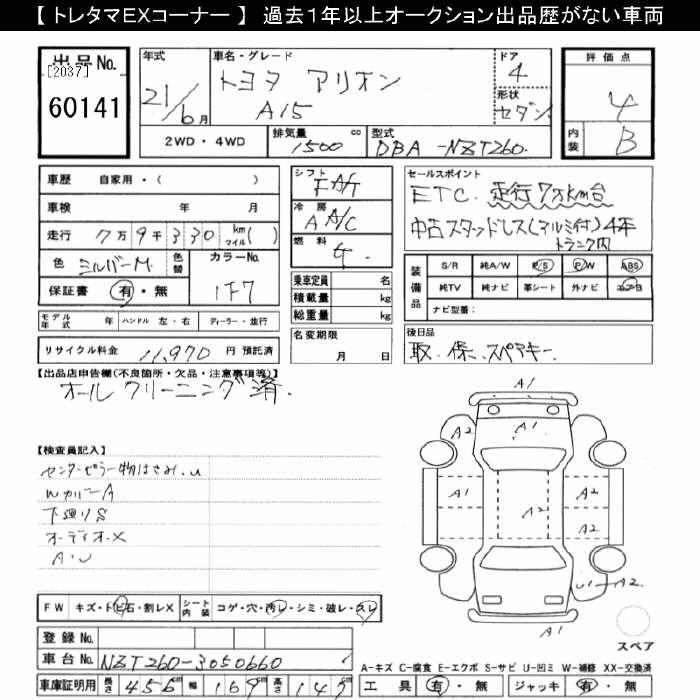 【トレタマEXコーナー】 過去１年以上オークション出品歴がない車両
出品No.
[2037]
60141
年式
21/6月
車名・グレード
トヨタ アリオン
A15
ドア
4
形状
セダン
2WD・4WD
排気量
1500 cc
型式
DBA-NZT260
評価点
4
内装
B
車歴 自家用・( )
車検 年 月
走行 7万9千330 km マイル( )
色 シルバーM. 色替
カラーNo.
1F7
保証書 有・無
モデル年式 年 ハンドル 左・右 ディーラー・並行
リサイクル料金 11,970 円 預託済
シフト
FA/T
冷房
AA/C
燃料
乗車定員 名
積載量 kg
総重量 kg
名変期限
月 日
セールスポイント
ETC. 走行7万km台
中古スタッドレス(アルミ付)4本
トランク内
装備品
S/R 純A/W P/S P/W ABS
純TV 純ナビ 革シート 外ナビ エアB
ナビ型番：
後日品
取.保.スペアキー.
【出品店申告欄(不良箇所・欠品・注意事項等)】
オールクリーニング済.
【検査員記入】
センターピラー物はさみ.U
WカバーA
下廻りS
オーディオX
A・U
FW キズ・トビ石・割レX シート内装 コゲ・穴・汚レ・シミ・破レ・スレ
登録No.
車台No. NZT260-3050660
車庫証明用 長さ 456cm 幅 169cm 高さ 147cm
A1
A2
A1
A2
A1
A2
A2
A2
U1
A2
A1
スペア
A-キズ C-腐食 E-エクボ S-サビ U-凹ミ W-補修 XX-交換済
工具 有・無 ジャッキ 有・無